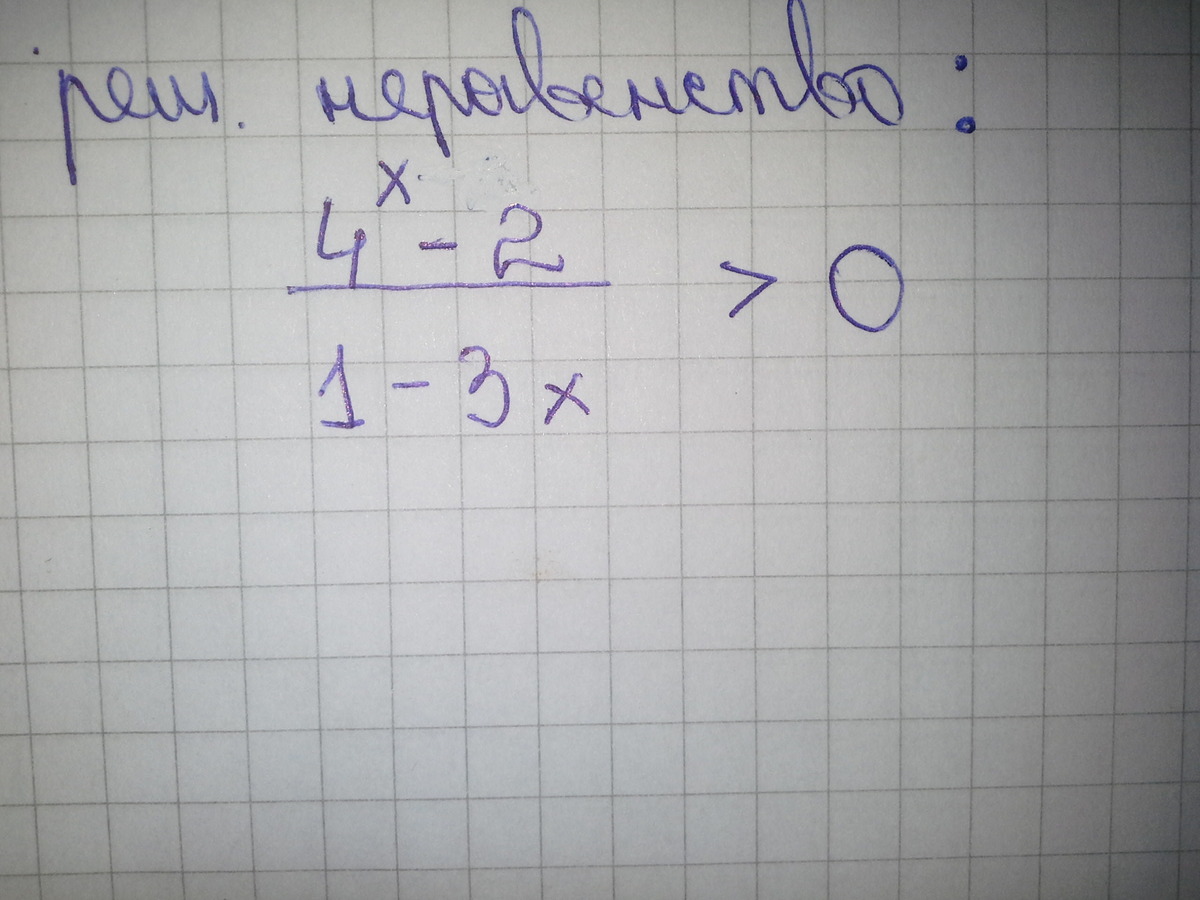 реш. неравенство:
4^x - 2
1 - 3x
> 0